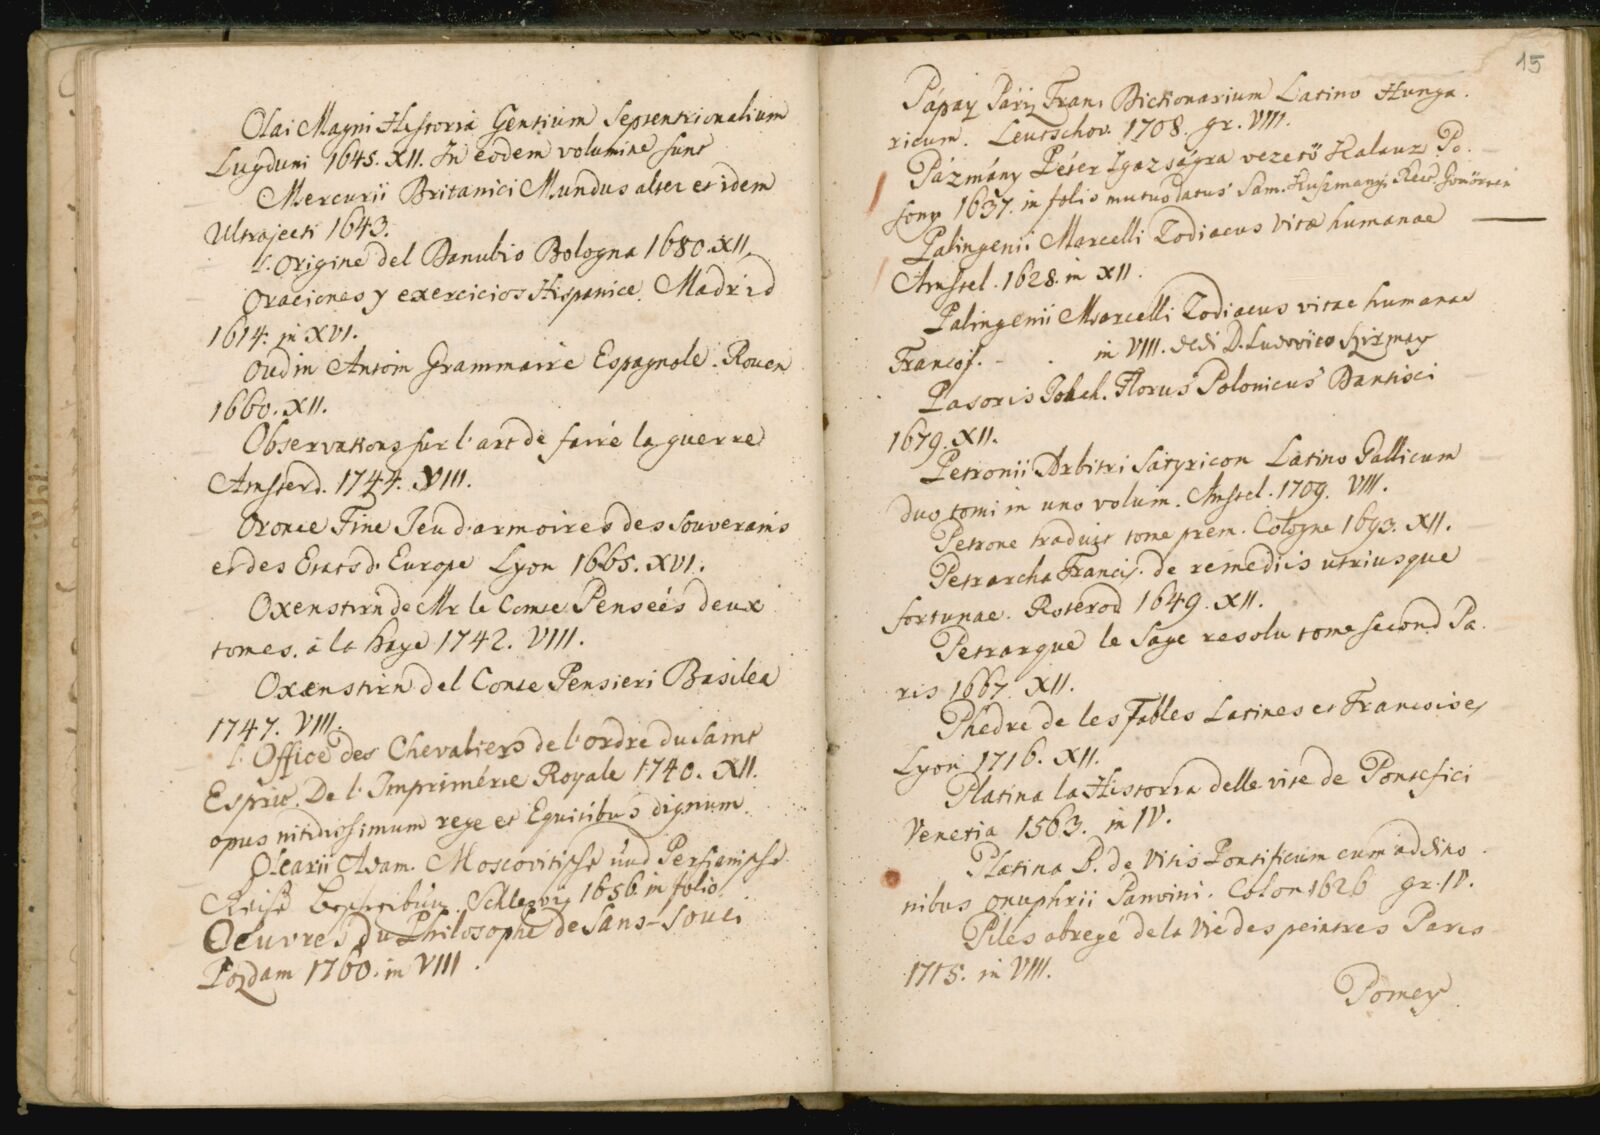 Olai Magni Historia Gentium Septentrionalium
Lugduni 1645. XII. In eodem volumine sunt
Mercurii Britanici Mundus alter et idem
Ultrajecti 1643.
l'Origine del Danubio Bologna 1680. XII.
Oraciones y exercicios Hispanice. Madrid
1614. in XVI.
Oudin Antoin Grammairie Espagnole. Rouen
1660. XII.
Observations sur l'art de faire la guerre
Amsterd. 1744. VIII.
Oronce Fine Jeu d'armoires des Souverains
et des Etats d'Europe Lyon 1665. XVI.
Oxenstirn de Mr le Comte Penseés deux
tomes. á la haye 1742. VIII.
Oxenstirn del Conte Pensieri Basilea
1747. VIII.
l'Office des Chevaliers de l'ordre du Saint
Esprit. De l'Imprimérie Royale 1740. XII.
opus nitidissimum rege et Equitibus dignum.
Olearii Adam. Moscovitische und Persianische
Reise Beschreibung. Schleswig 1656. in folio.
Oeuvres du Philosophe de Sans-Souci
Pozdam 1760. in VIII.
15
Pápay Páriz Fran. Dictionarium Latino Hunga.
ricum. Leutschov. 1708. gr. VIII.
Pázmány Péter Igazságra vezető Kalauz Po.
sony 1637. in folio mutuo datus Sam. Huszmany
Palingenii Marcelli Zodiacus vitæ humanae
Amstel. 1628. in XII.
Palingenii Marcelli Zodiacus vitae humanae
Francof. - . in VIII. dedi D. Ludovico Szirmay
Pasoris Joach. Florus Polonicus Dantisci
1679. XII.
Petronii Arbitri Satyricon Latino Gallicum
duo tomi in uno volum. Amstel. 1709. VIII.
Petrone traduit tome prem. Cologne 1693. XII.
Petrarcha Francis. de remediis utriusque
fortunae. Roterod 1649. XII.
Petrarque le Sage resolu tome second Pa.
ris 1667. XII.
Phédre de les Fables Latines et Francoises
Lyon 1716. XII.
Platina la Historia delle vite de Pontefici
Venetia 1563. in IV.
Platina B. de Vitis Pontificum cum additio.
nibus onuphrii Panvini. Colon 1626 gr. IV.
Piles abregé de la Vie des peintres Paris
1715. in VIII.
Pomey